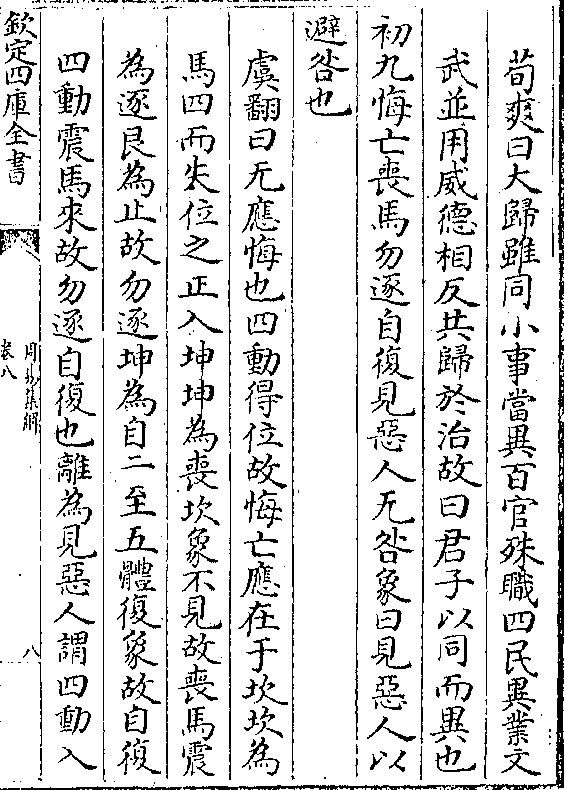 荀爽曰大歸雖同小事當異百官殊職四民異業文
武並用威德相反共歸於治故曰君子以同而異也
初九悔亡喪馬勿逐自復見惡人无咎象曰見惡人以
避咎也
虞翻曰无應悔也四動得位故悔亡應在于坎坎為
馬四而失位之正入坤坤為喪坎象不見故喪馬震
為逐艮為止故勿逐坤為自二至五體復象故自復
四動震馬來故勿逐自復也離為見惡人謂四動入
欽定四庫全書
周易集解
卷八
八